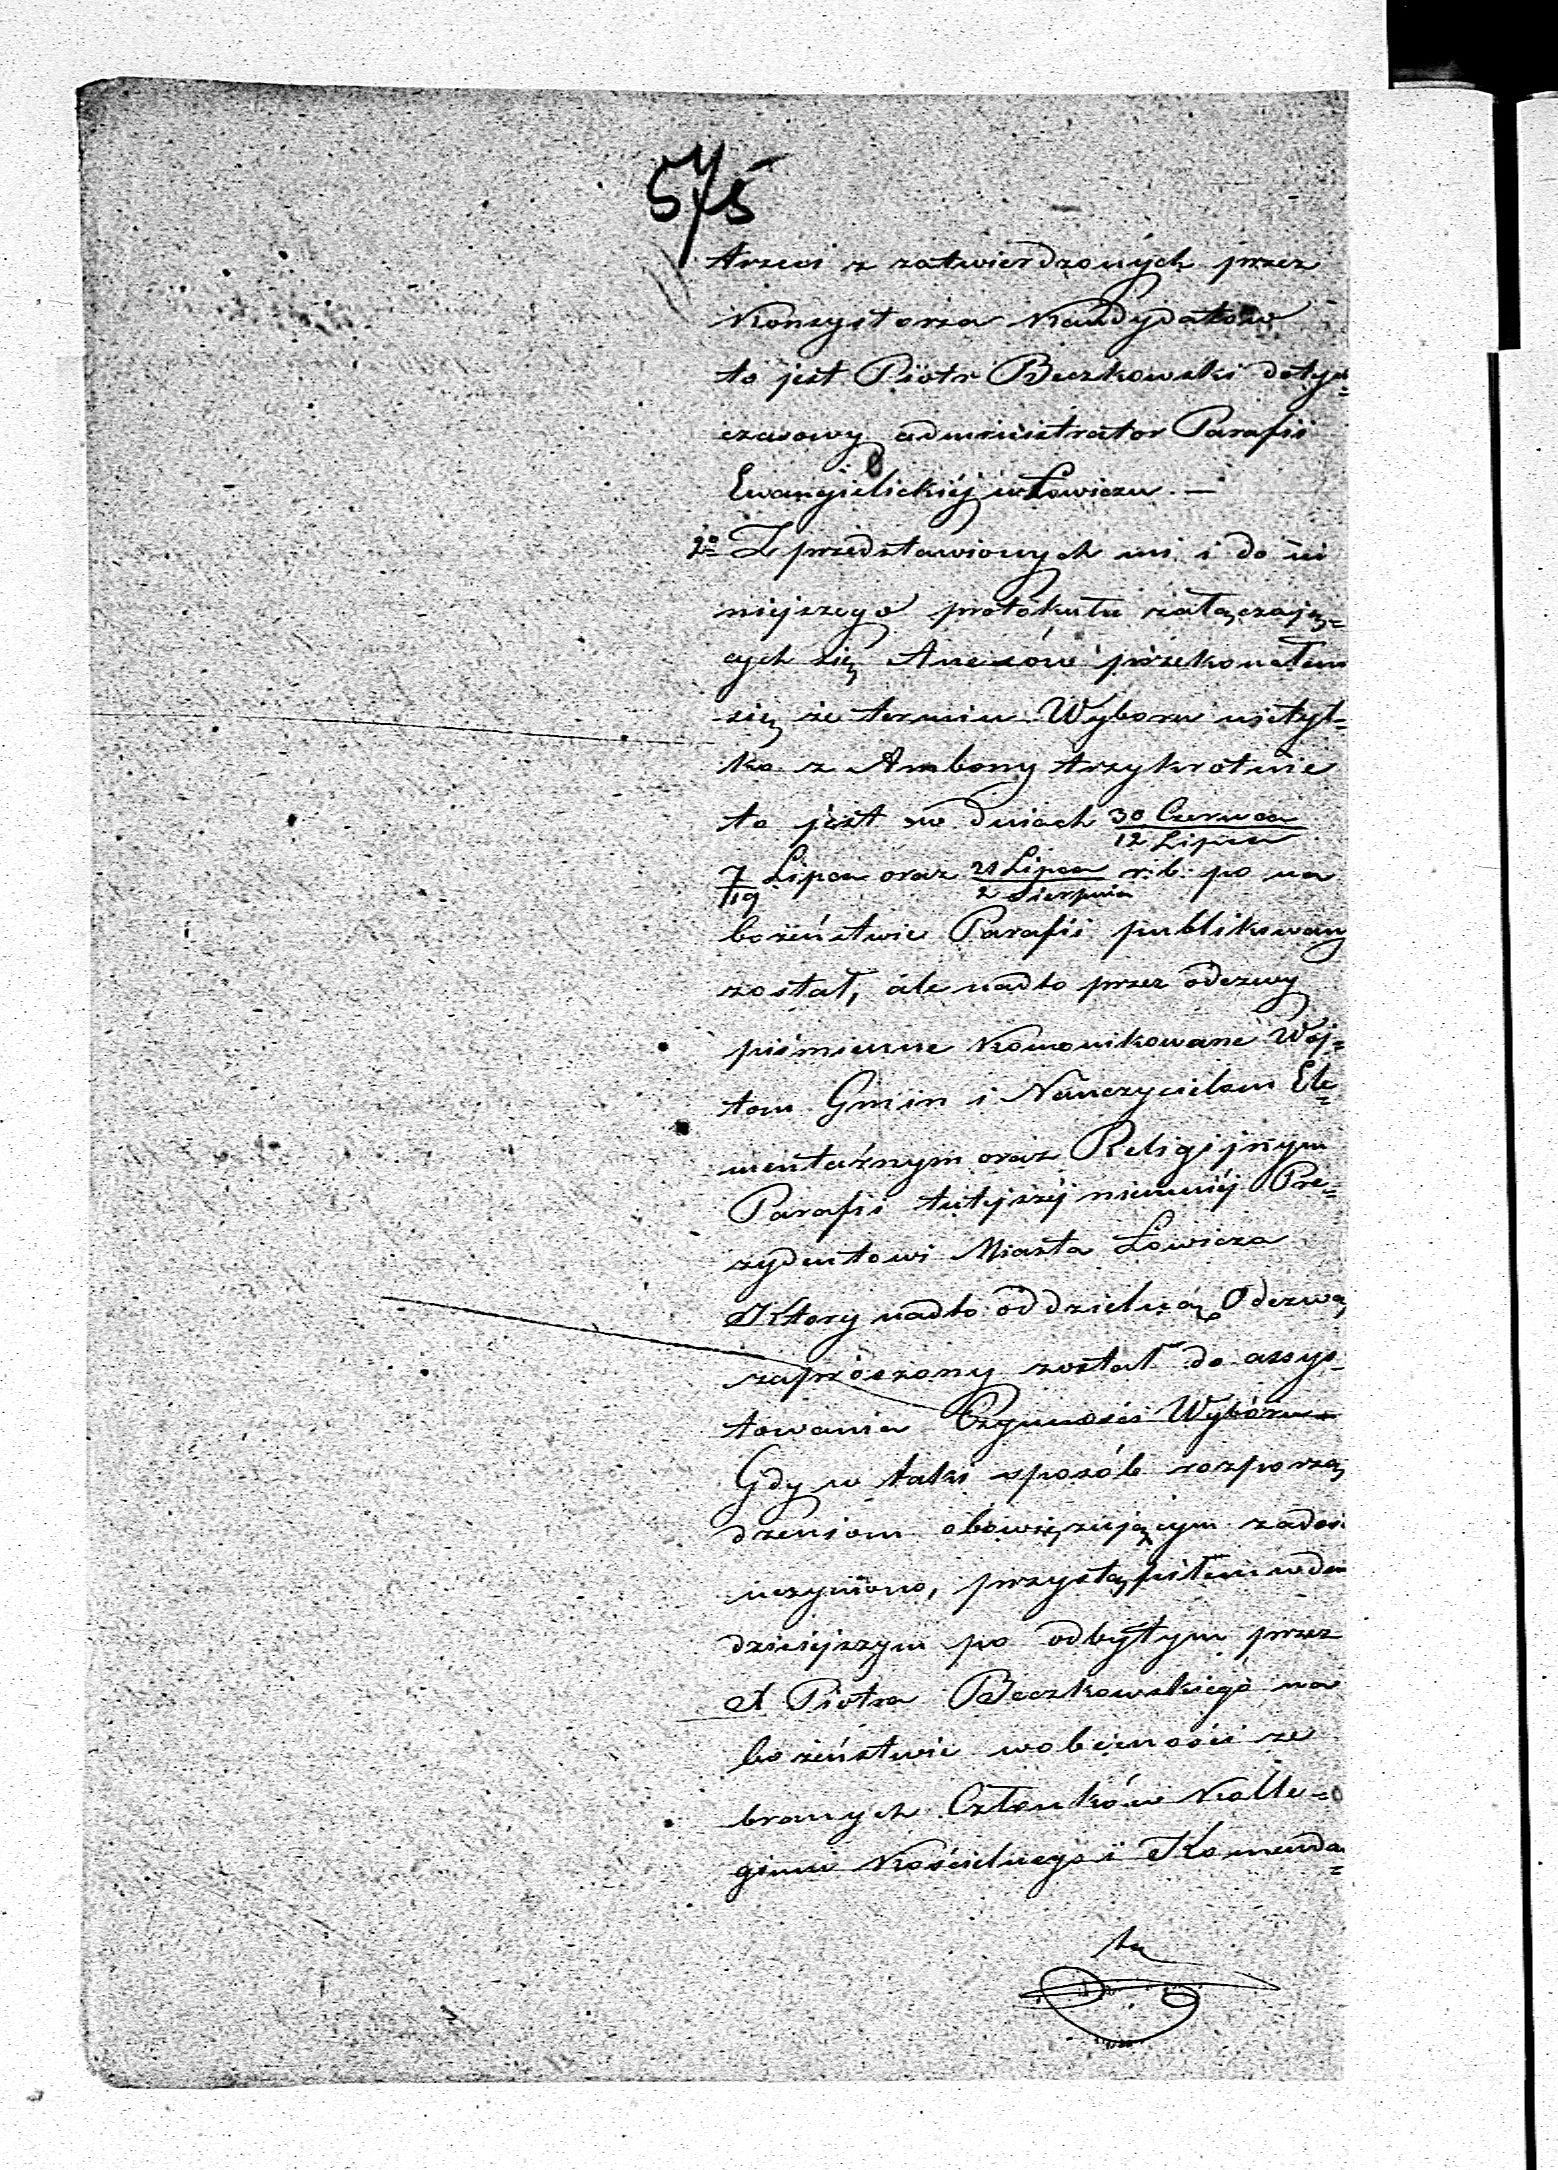 575
trzeci z zatwierdzonych przez
Konsystorza Kandydatów
to jest Piotr Beczkowski dotych=
czasowy administrator Parafii
Ewangielickiéj w Łowiczu. —
2o Z przedstawionych mi i do ni
niejszego protokułu załączają=
cych się Anexów przekonałem
się że termin Wyboru nietyl=
ko z Ambony trzykrotnie
to jest w dniach 30 Czerwca / 12 Lipca
7/19 Lipca oraz 21 Lipca / 2 Sierpnia r. b. po na
bożeństwie Parafii publikowany
został, ale nadto przez odezwy
piśmienne Komonikowane Wój=
tom Gmin i Nauczycielom Ele=
mentarnym oraz Religijnym
Parafii tutejszéj niemniéj Pre=
zydentowi Miasta Łowicza
Który nadto oddzielną Odezwą
zaproszony został do assys=
towania Czynności Wyboru —
Gdy w taki sposób rozporzą
dzeniom obowiązującym zadość
uczyniono, przystąpiłem w dniu
dzisiejszym po odbytym przez
X Piotra Beczkowskiego na
bożeństwie wobecności ze
branych Członków Kolle=
gium Kościelnego i Komenda=